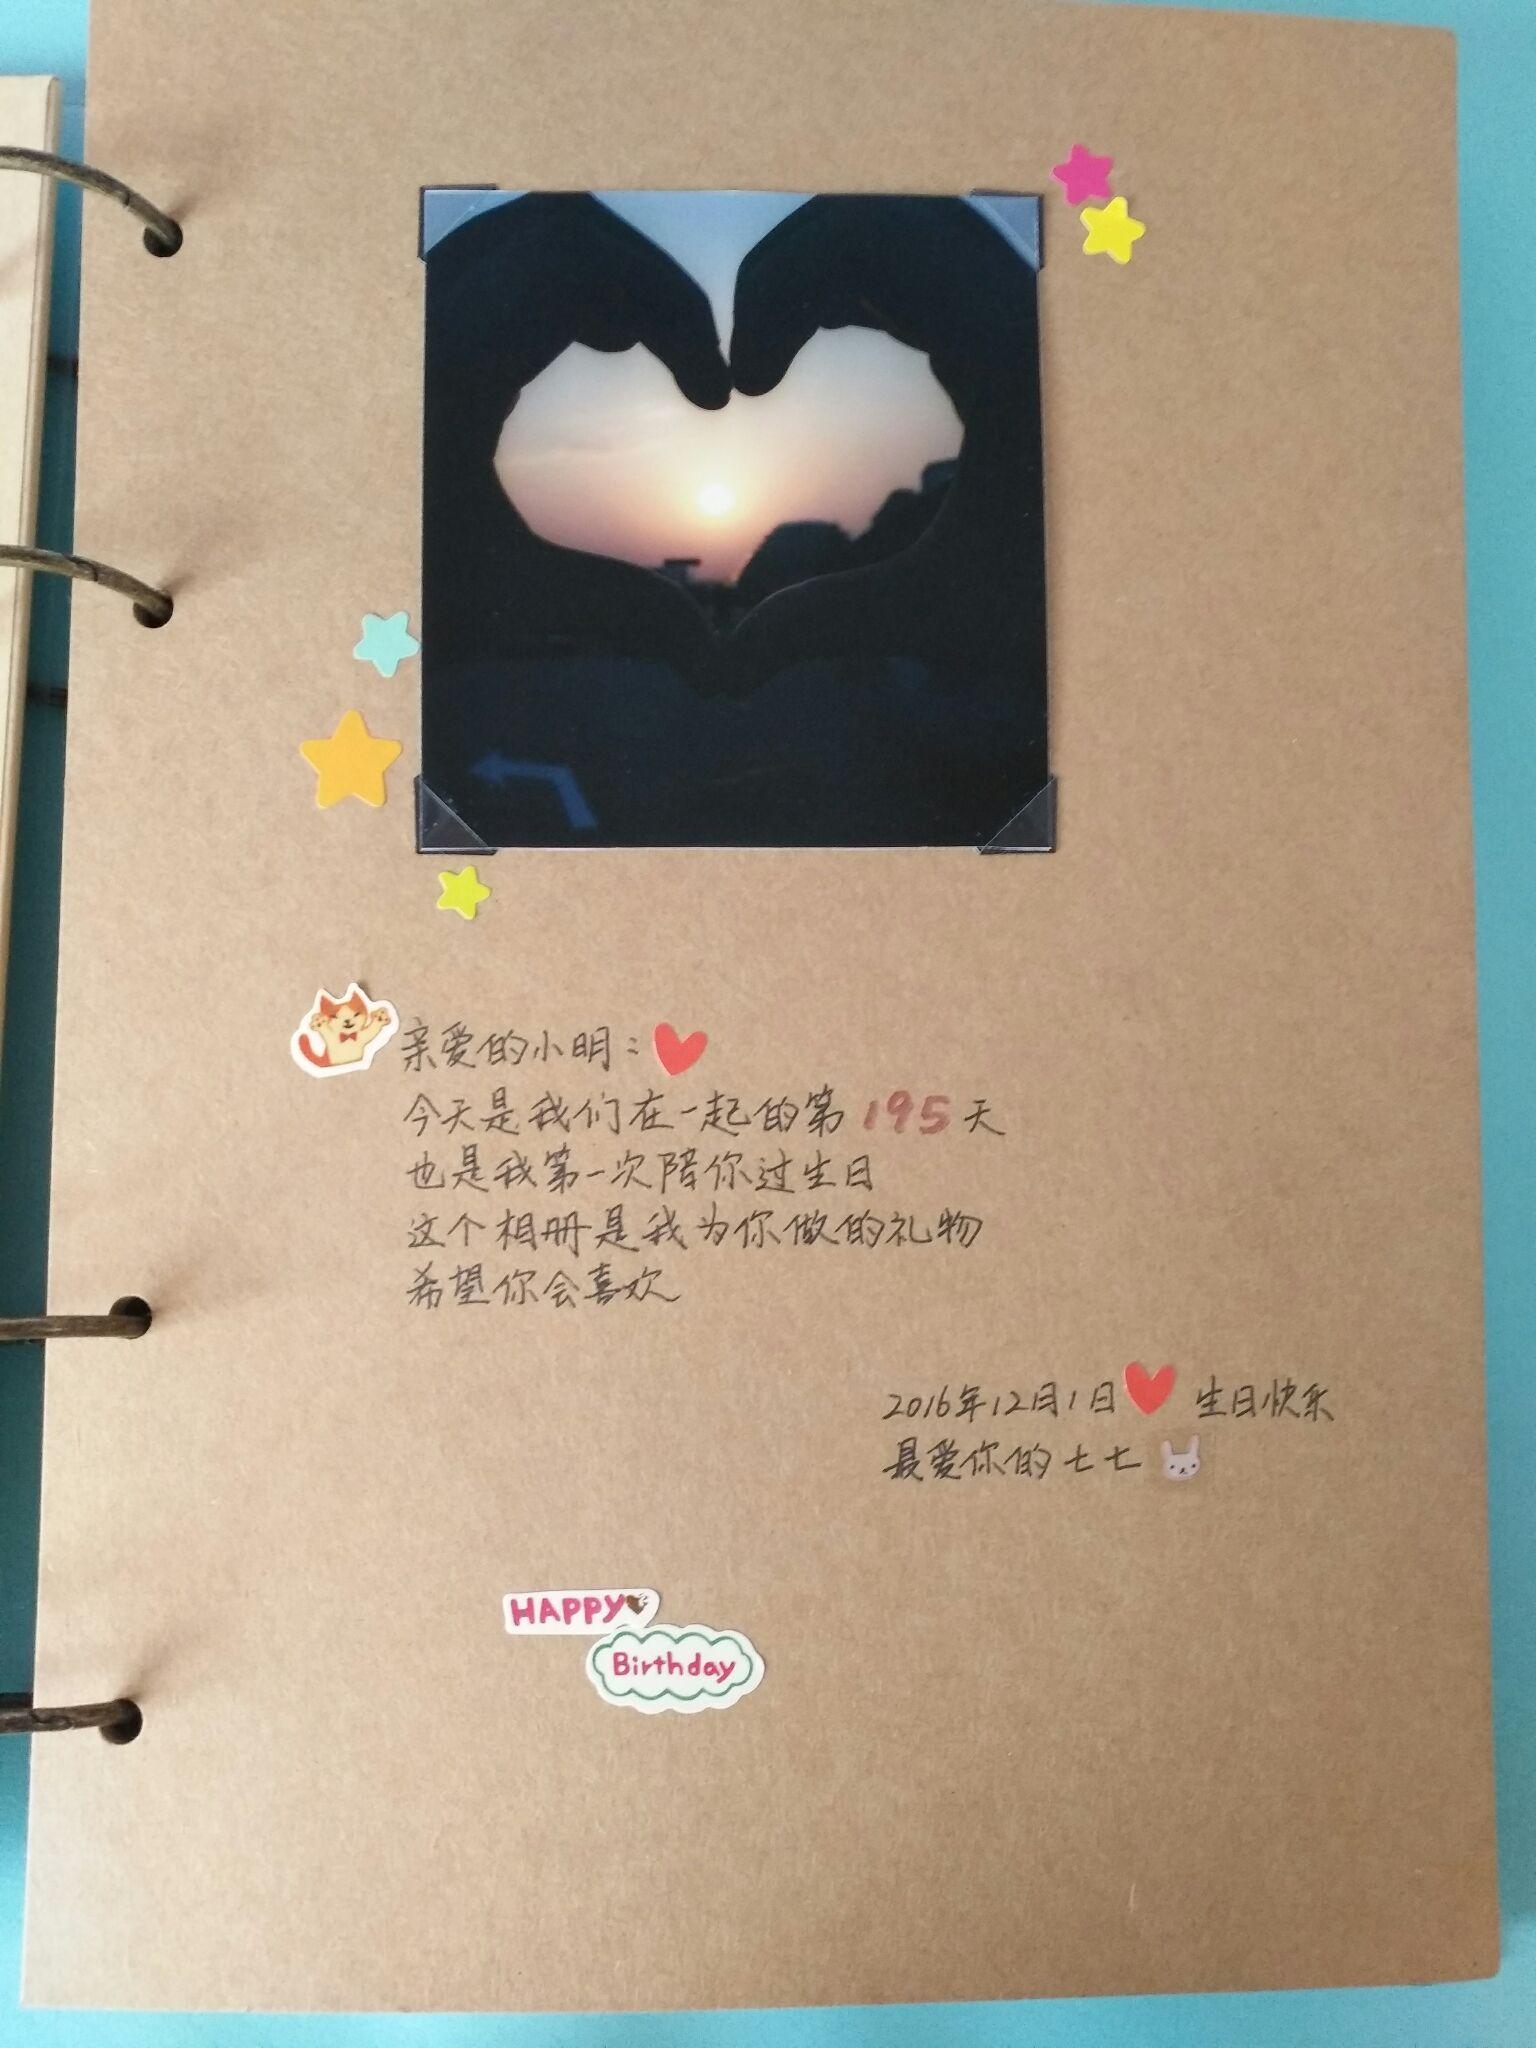 亲爱的小明：
今天是我们在一起的第195天
也是我第一次陪你过生日
这个相册是我为你做的礼物
希望你会喜欢
2016年12月1日 生日快乐
最爱你的七七
HAPPY
Birthday